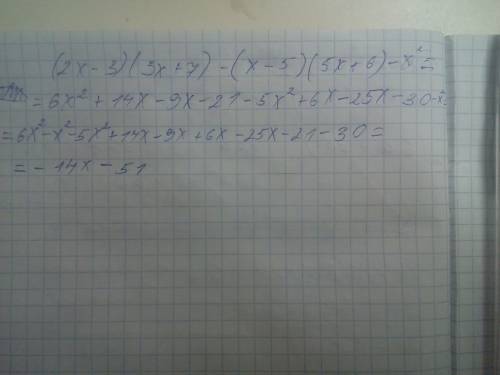 (2x-3)(3x+7)-(x-5)(5x+6)-x²=
=6x²+14x-9x-21-5x²+6x-25x-30-x²=
=6x²-x²-5x²+14x-9x+6x-25x-21-30=
=-14x-51